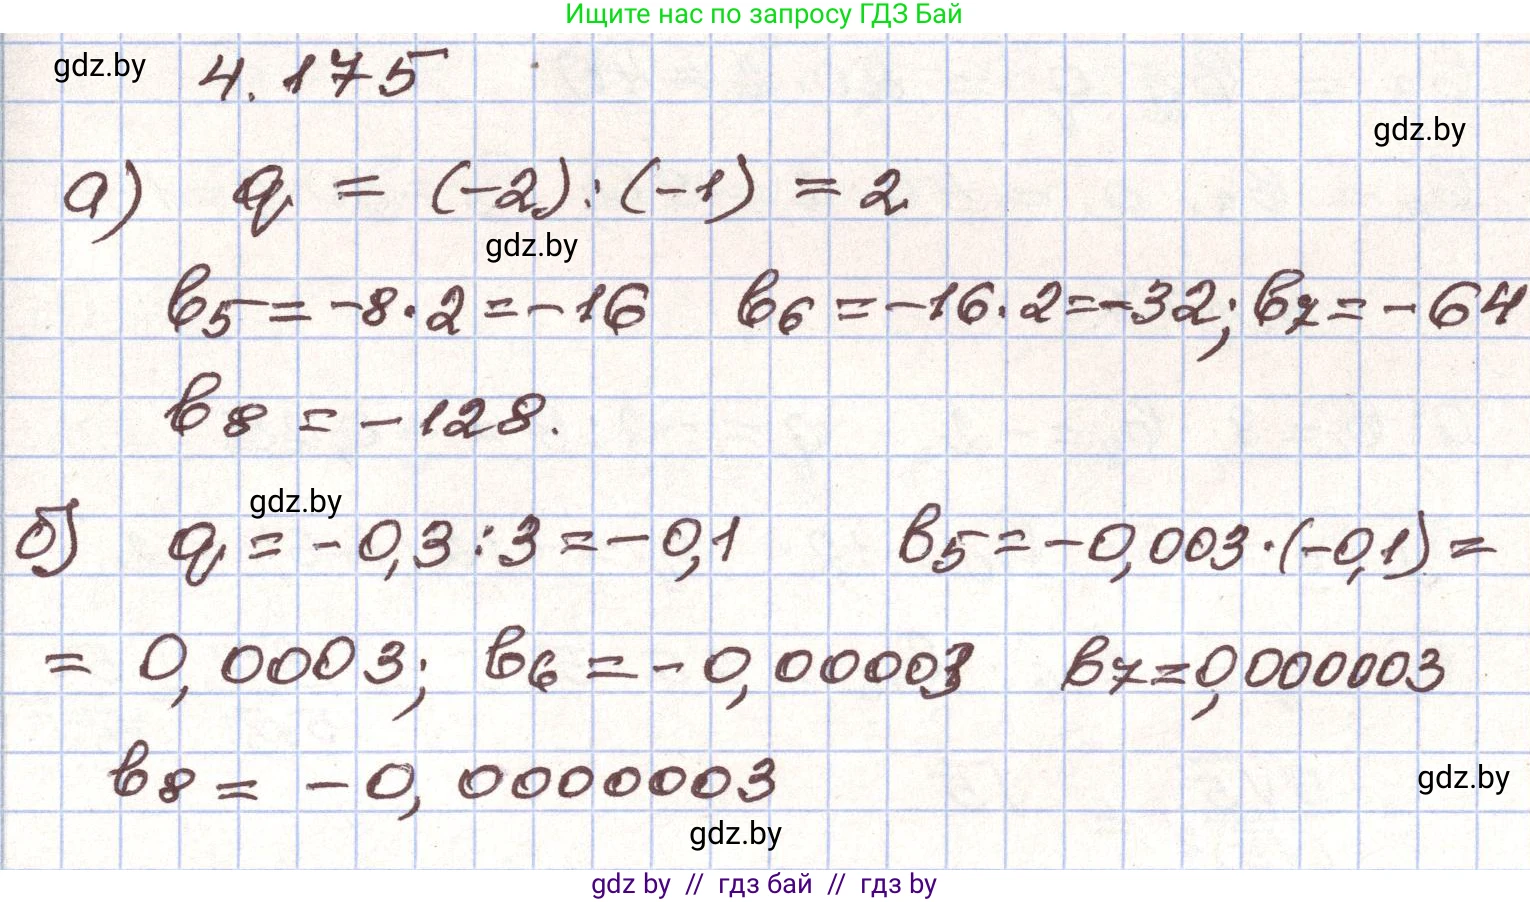 Ищите нас по запросу ГДЗ Бай
gdz.by 4.175
gdz.by
а) q = (-2) : (-1) = 2
gdz.by
в5 = -8·2 = -16 в6 = -16·2 = -32; в7 = -64
в8 = -128.
gdz.by
б) q = -0,3 : 3 = -0,1 в5 = -0,003·(-0,1) =
= 0,0003; в6 = -0,00003 в7 = 0,000003
в8 = -0,0000003
gdz.by
gdz.by
gdz by // гдз бай // гдз by